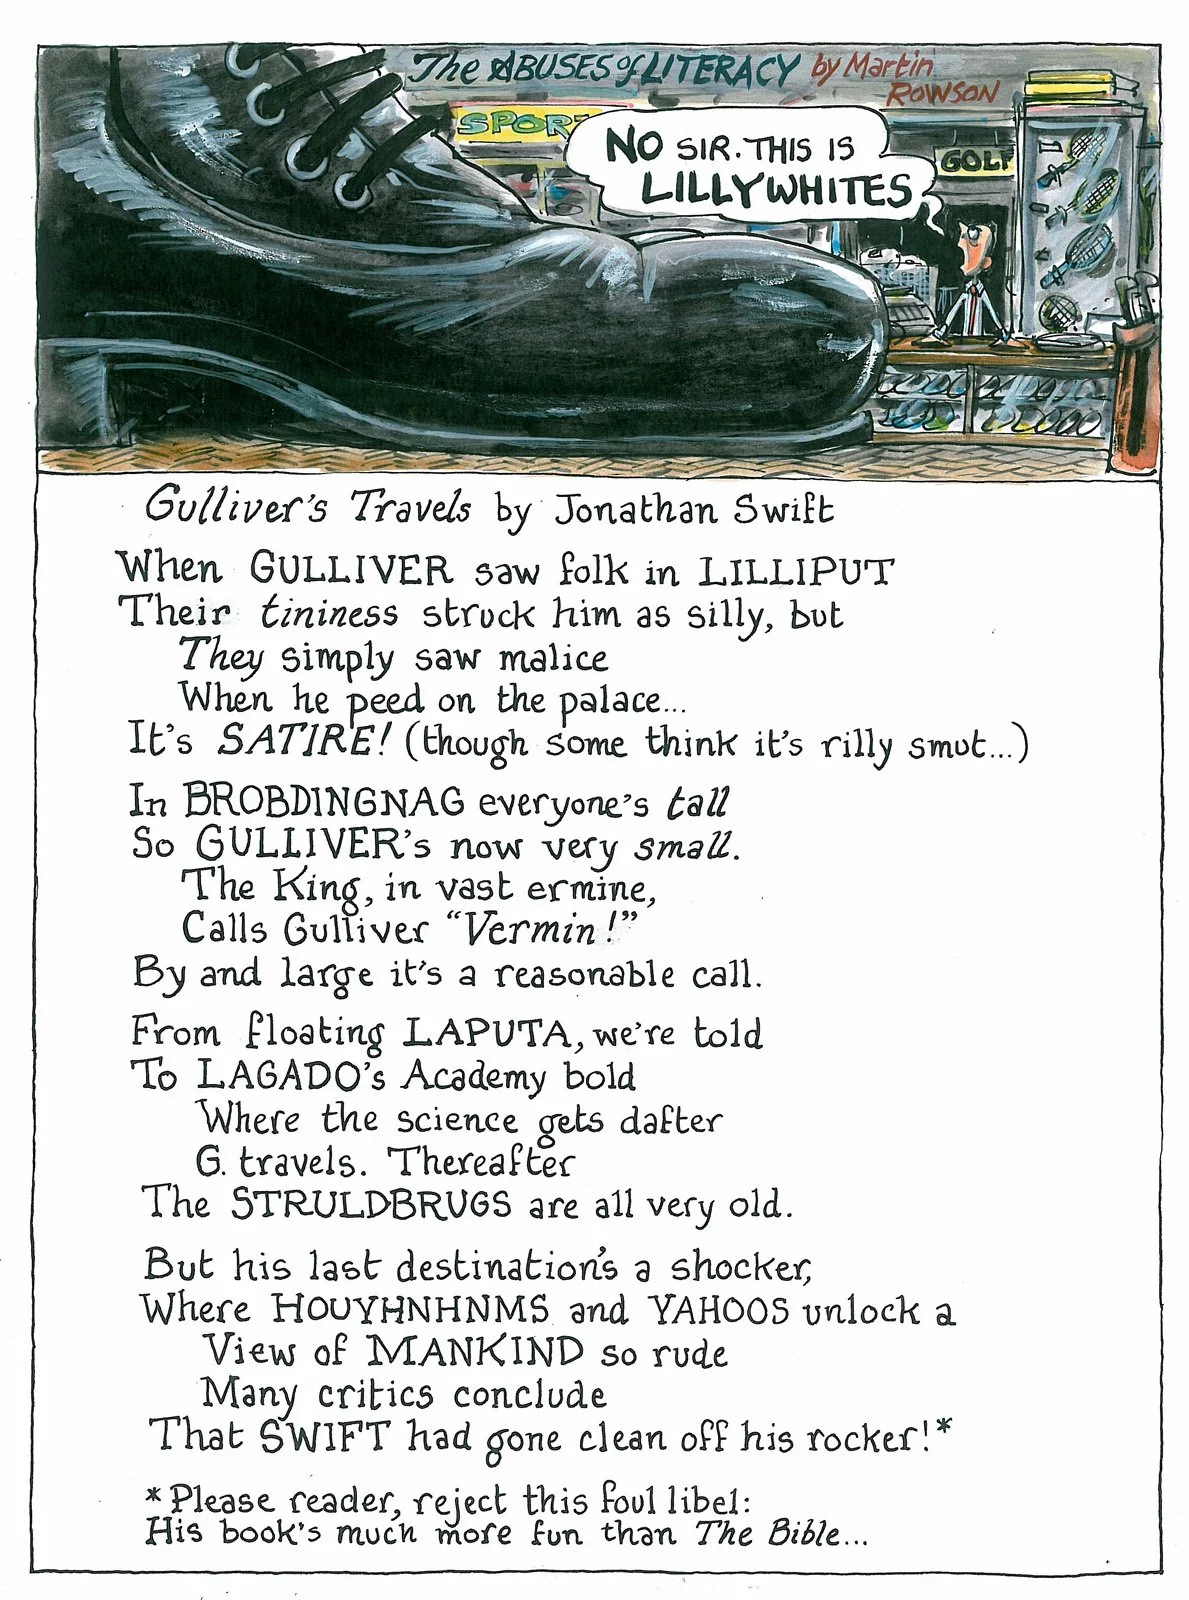 The ABUSES of LITERACY by Martin
ROWSON
SPOR
NO SIR. THIS IS
LILLYWHITES
GOLF
Gulliver's Travels by Jonathan Swift
When GULLIVER saw folk in LILLIPUT
Their tininess struck him as silly, but
They simply saw malice
When he peed on the palace...
It's SATIRE! (though some think it's rilly smut...)
In BROBDINGNAG everyone's tall
So GULLIVER's now very small.
The King, in vast ermine,
Calls Gulliver "Vermin!"
By and large it's a reasonable call.
From floating LAPUTA, we're told
To LAGADO's Academy bold
Where the science gets dafter
G. travels. Thereafter
The STRULDBRUGS are all very old.
But his last destination's a shocker,
Where HOUYHNHNMS and YAHOOS unlock a
View of MANKIND so rude
Many critics conclude
That SWIFT had gone clean off his rocker!*
*Please reader, reject this foul libel:
His book's much more fun than The Bible...